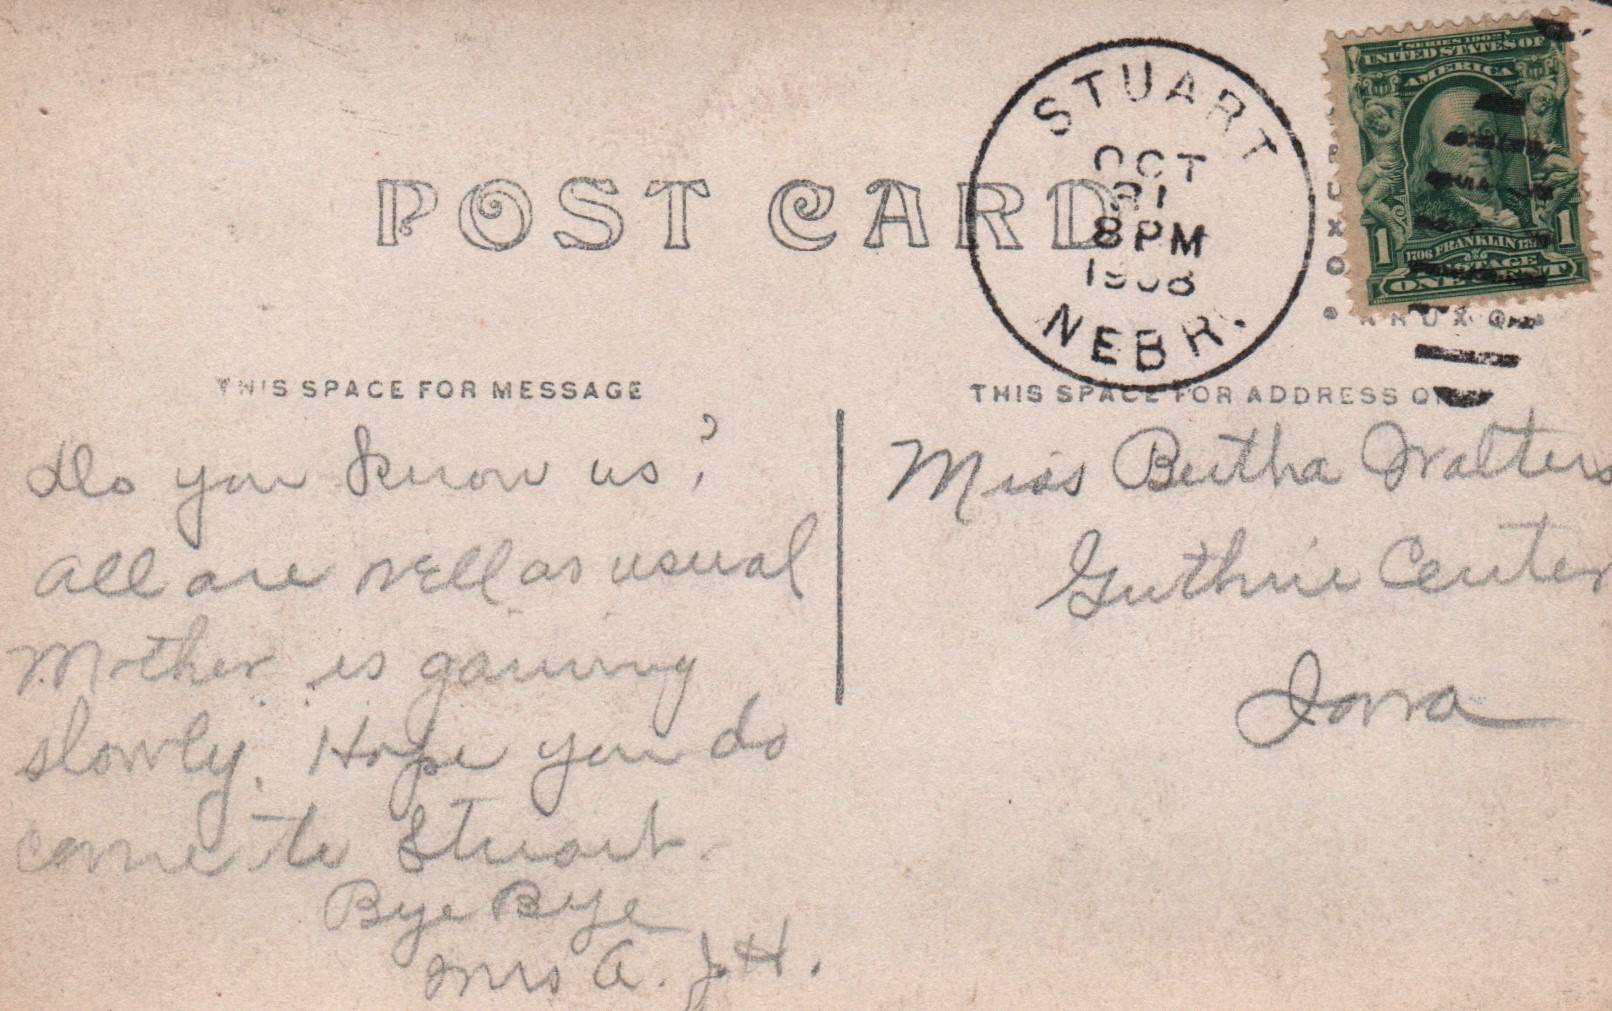 POST CARD
STUART
OCT
31
8 PM
1908
NEBR.
SERIES 1902
UNITED STATES OF
AMERICA
1706 FRANKLIN 1790
1 1
POSTAGE
ONE CENT
KRUXO
THIS SPACE FOR MESSAGE
Do you know us?
All are well as usual
Mother is gaining
slowly. Hope you do
come to Stuart.
Bye Bye
Mrs A. J. H.
THIS SPACE FOR ADDRESS ONLY
Miss Bertha Walters
Guthrie Center
Iowa